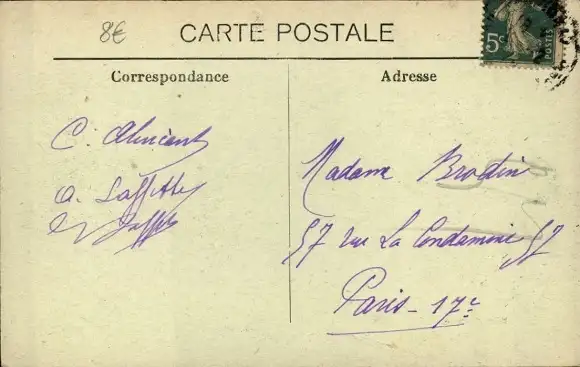 8€
CARTE POSTALE
5c
POSTES
Correspondance
Adresse
A. Laffitte
Madame Brodin
57 rue La Condamine 57
Paris - 17e